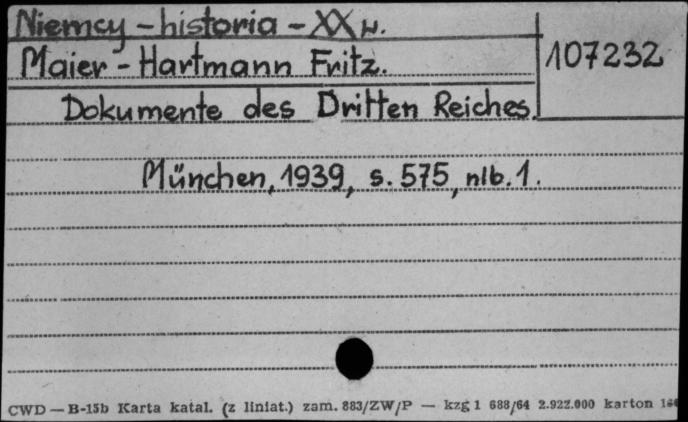 Niemcy - historia - XX w.
Maier - Hartmann Fritz.
107232
Dokumente des Dritten Reiches.
München, 1939, s. 575, nlb. 1.
CWD — B-15b Karta katal. (z liniat.) zam. 883/ZW/P — kzg 1 688/64 2.922.000 karton